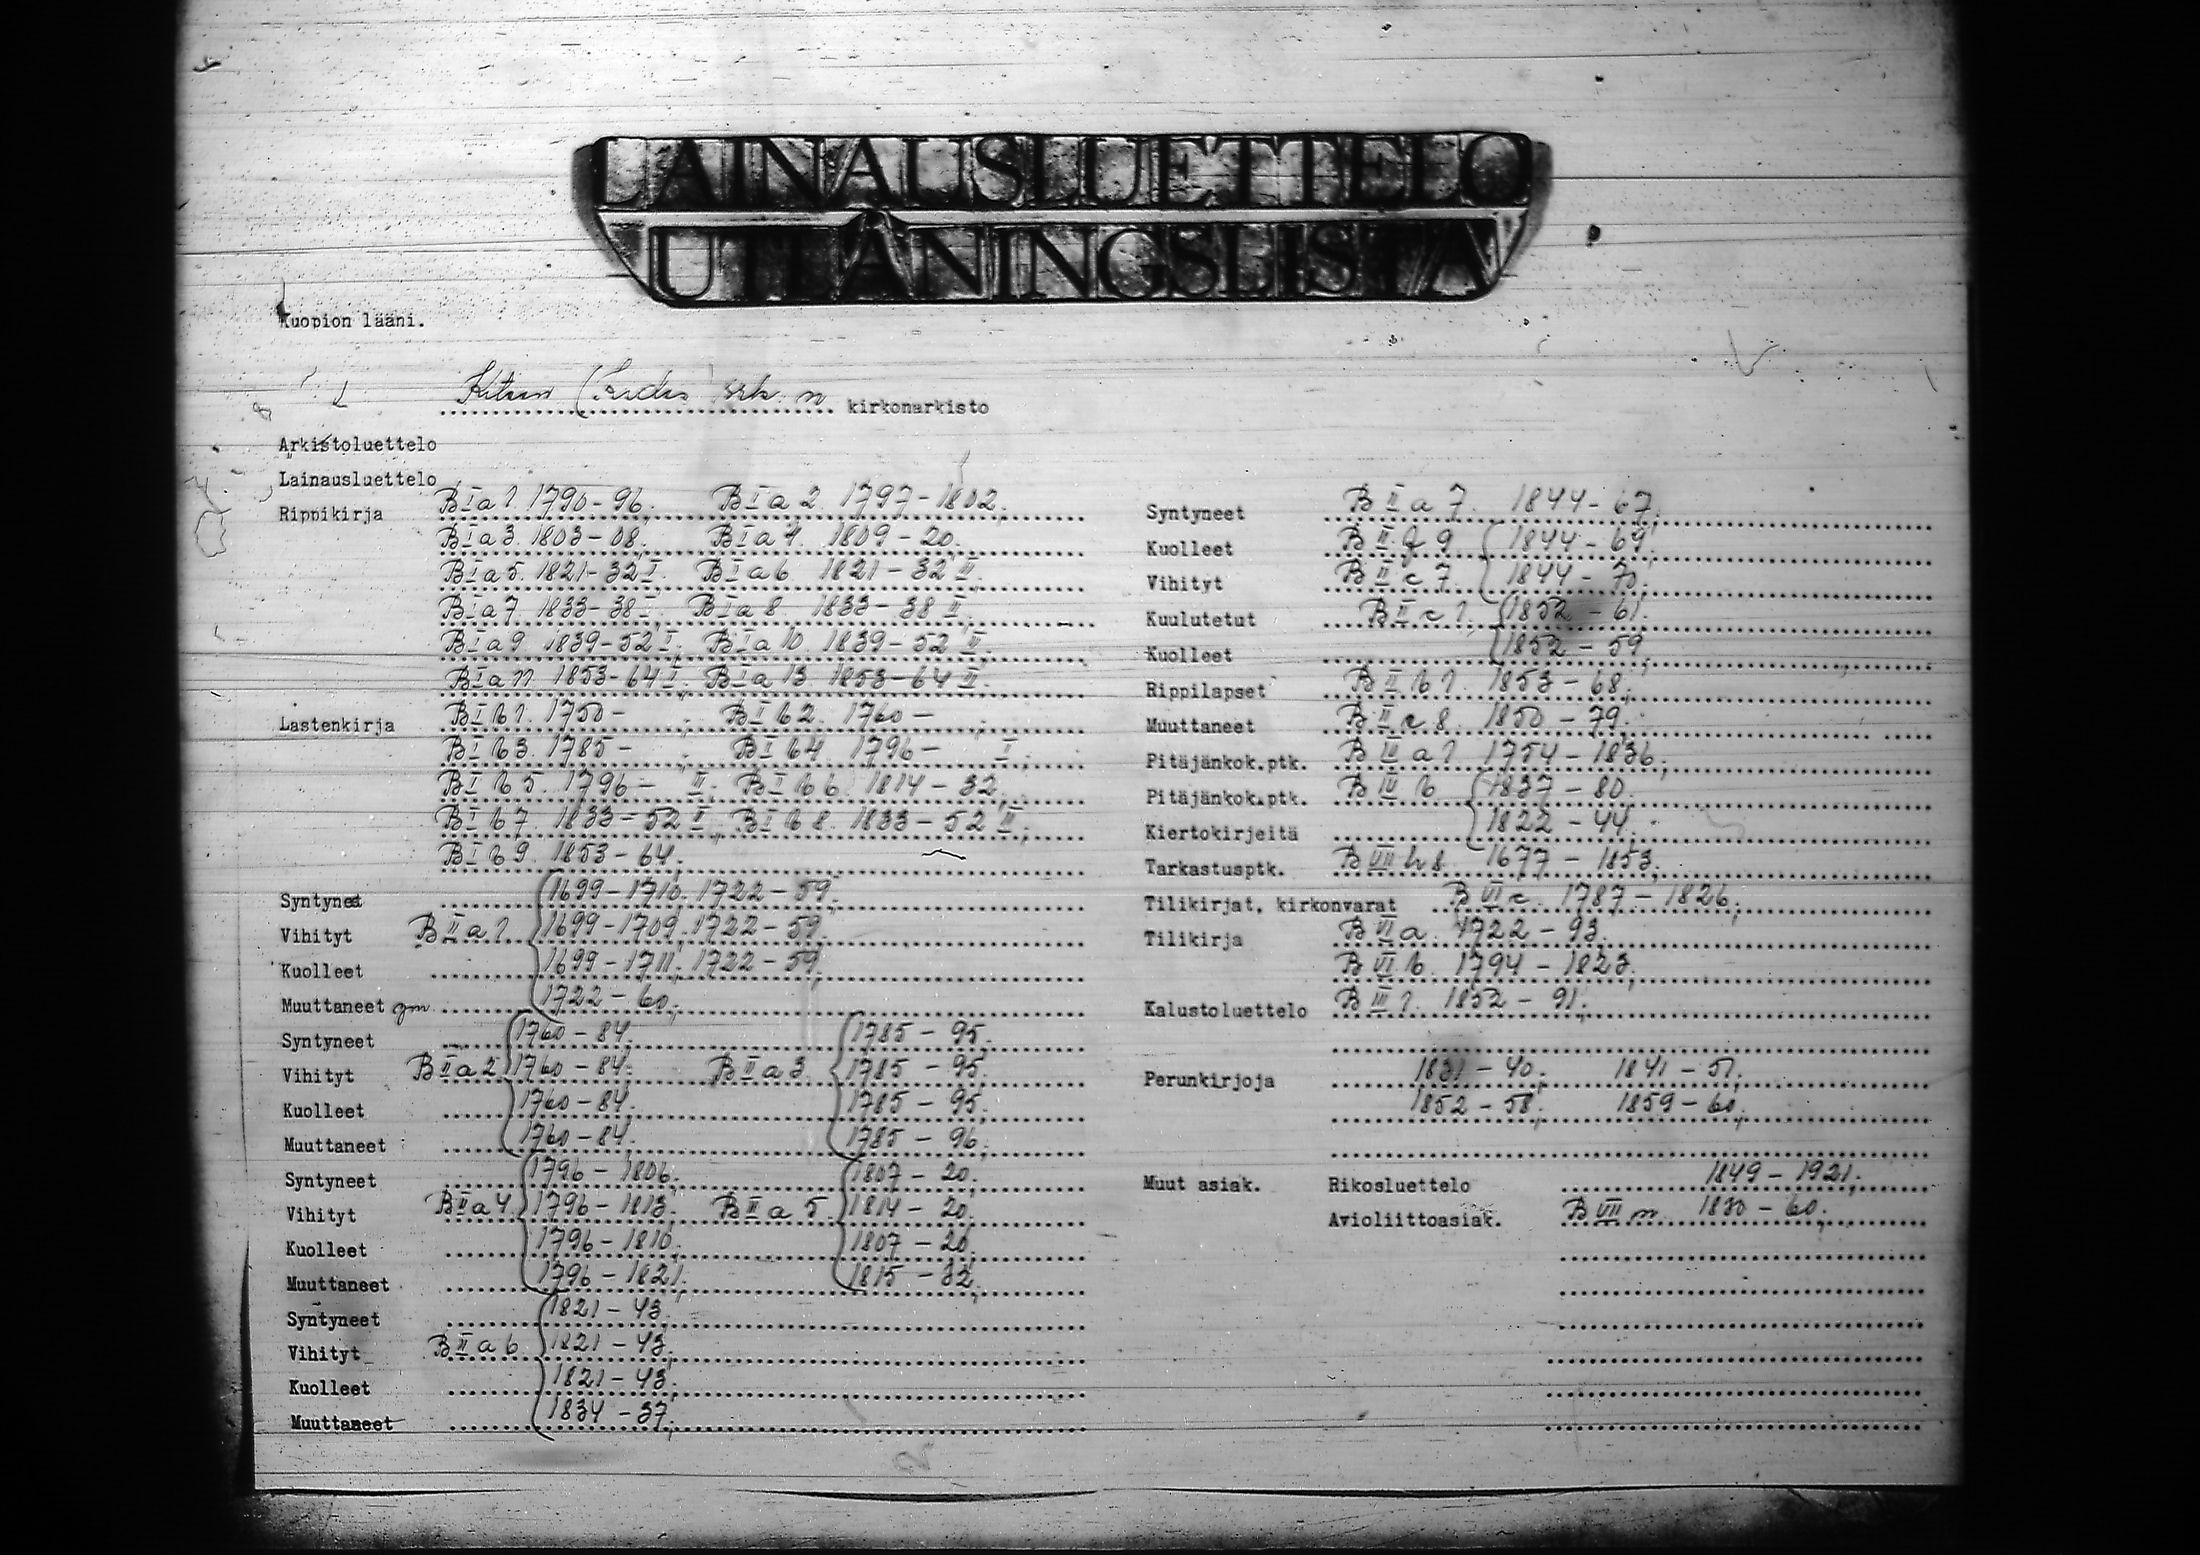 LAINAUSLUETTELO
UTLÅNINGSLISTA
Kuopion lääni.
srk. n kirkonarkisto
Arkistoluettelo
Lainausluettelo
Rippikirja B I a 1 1790-96. B I a 2. 1797-1802.
B I a 3. 1803-08. B I a 4. 1809-20.
B I a 5. 1821-32 I. B I a 6. 1821-32 II.
B I a 7. 1833-38 I. B I a 8. 1833-38 II.
B I a 9. 1839-52 I. B I a 10. 1839-52 II.
B I a 11. 1853-64 I. B I a 13. 1853-64 II.
Lastenkirja B I b 1. 1750- . B I b 2. 1760- ;
B I b 3. 1785- ; B I b 4. 1796- I ;
B I b 5. 1796- II; B I b 6. 1814-32.
B I b 7. 1833-52 I. B I b 8. 1833-52 II.
B I b 9. 1853-64.
Syntyneet 1699-1710, 1722-59.
Vihityt B II a 1. 1699-1709, 1722-59.
Kuolleet 1699-1711, 1722-59.
Muuttaneet ym 1722-60.
Syntyneet 1760-84. 1785-95.
Vihityt B II a 2 1760-84. B II a 3. 1785-95.
Kuolleet 1760-84. 1785-95.
Muuttaneet 1760-84. 1785-96.
Syntyneet 1796-1806. 1807-20.
Vihityt B II a 4. 1796-1813. B II a 5. 1814-20.
Kuolleet 1796-1810. 1807-20.
Muuttaneet 1796-1821. 1815-32.
Syntyneet 1821-43.
Vihityt B II a 6. 1821-43.
Kuolleet 1821-43.
Muuttaneet 1834-37.
Syntyneet B II a 7. 1844-67.
Kuolleet B II f 9 1844-69.
Vihityt B II c 7. 1844-70.
Kuulutetut B II c 1. 1852-61.
Kuolleet 1852-59.
Rippilapset B II b 1. 1853-68.
Muuttaneet B II e 8. 1850-79.
Pitäjänkok.ptk. B III a 1. 1754-1836.
Pitäjänkok.ptk. B III b 1837-80.
Kiertokirjeitä 1822-44.
Tarkastusptk. B VII h 8. 1677-1853.
Tilikirjat, kirkonvarat B VI c. 1787-1826.
Tilikirja B VI a. 1722-93.
B VI b. 1794-1823.
Kalustoluettelo B III 1. 1852-91.
Perunkirjoja 1831-40. 1841-51.
1852-58. 1859-60.
Muut asiak. Rikosluettelo 1849-1921.
Avioliittoasiak. B VII n. 1830-60.